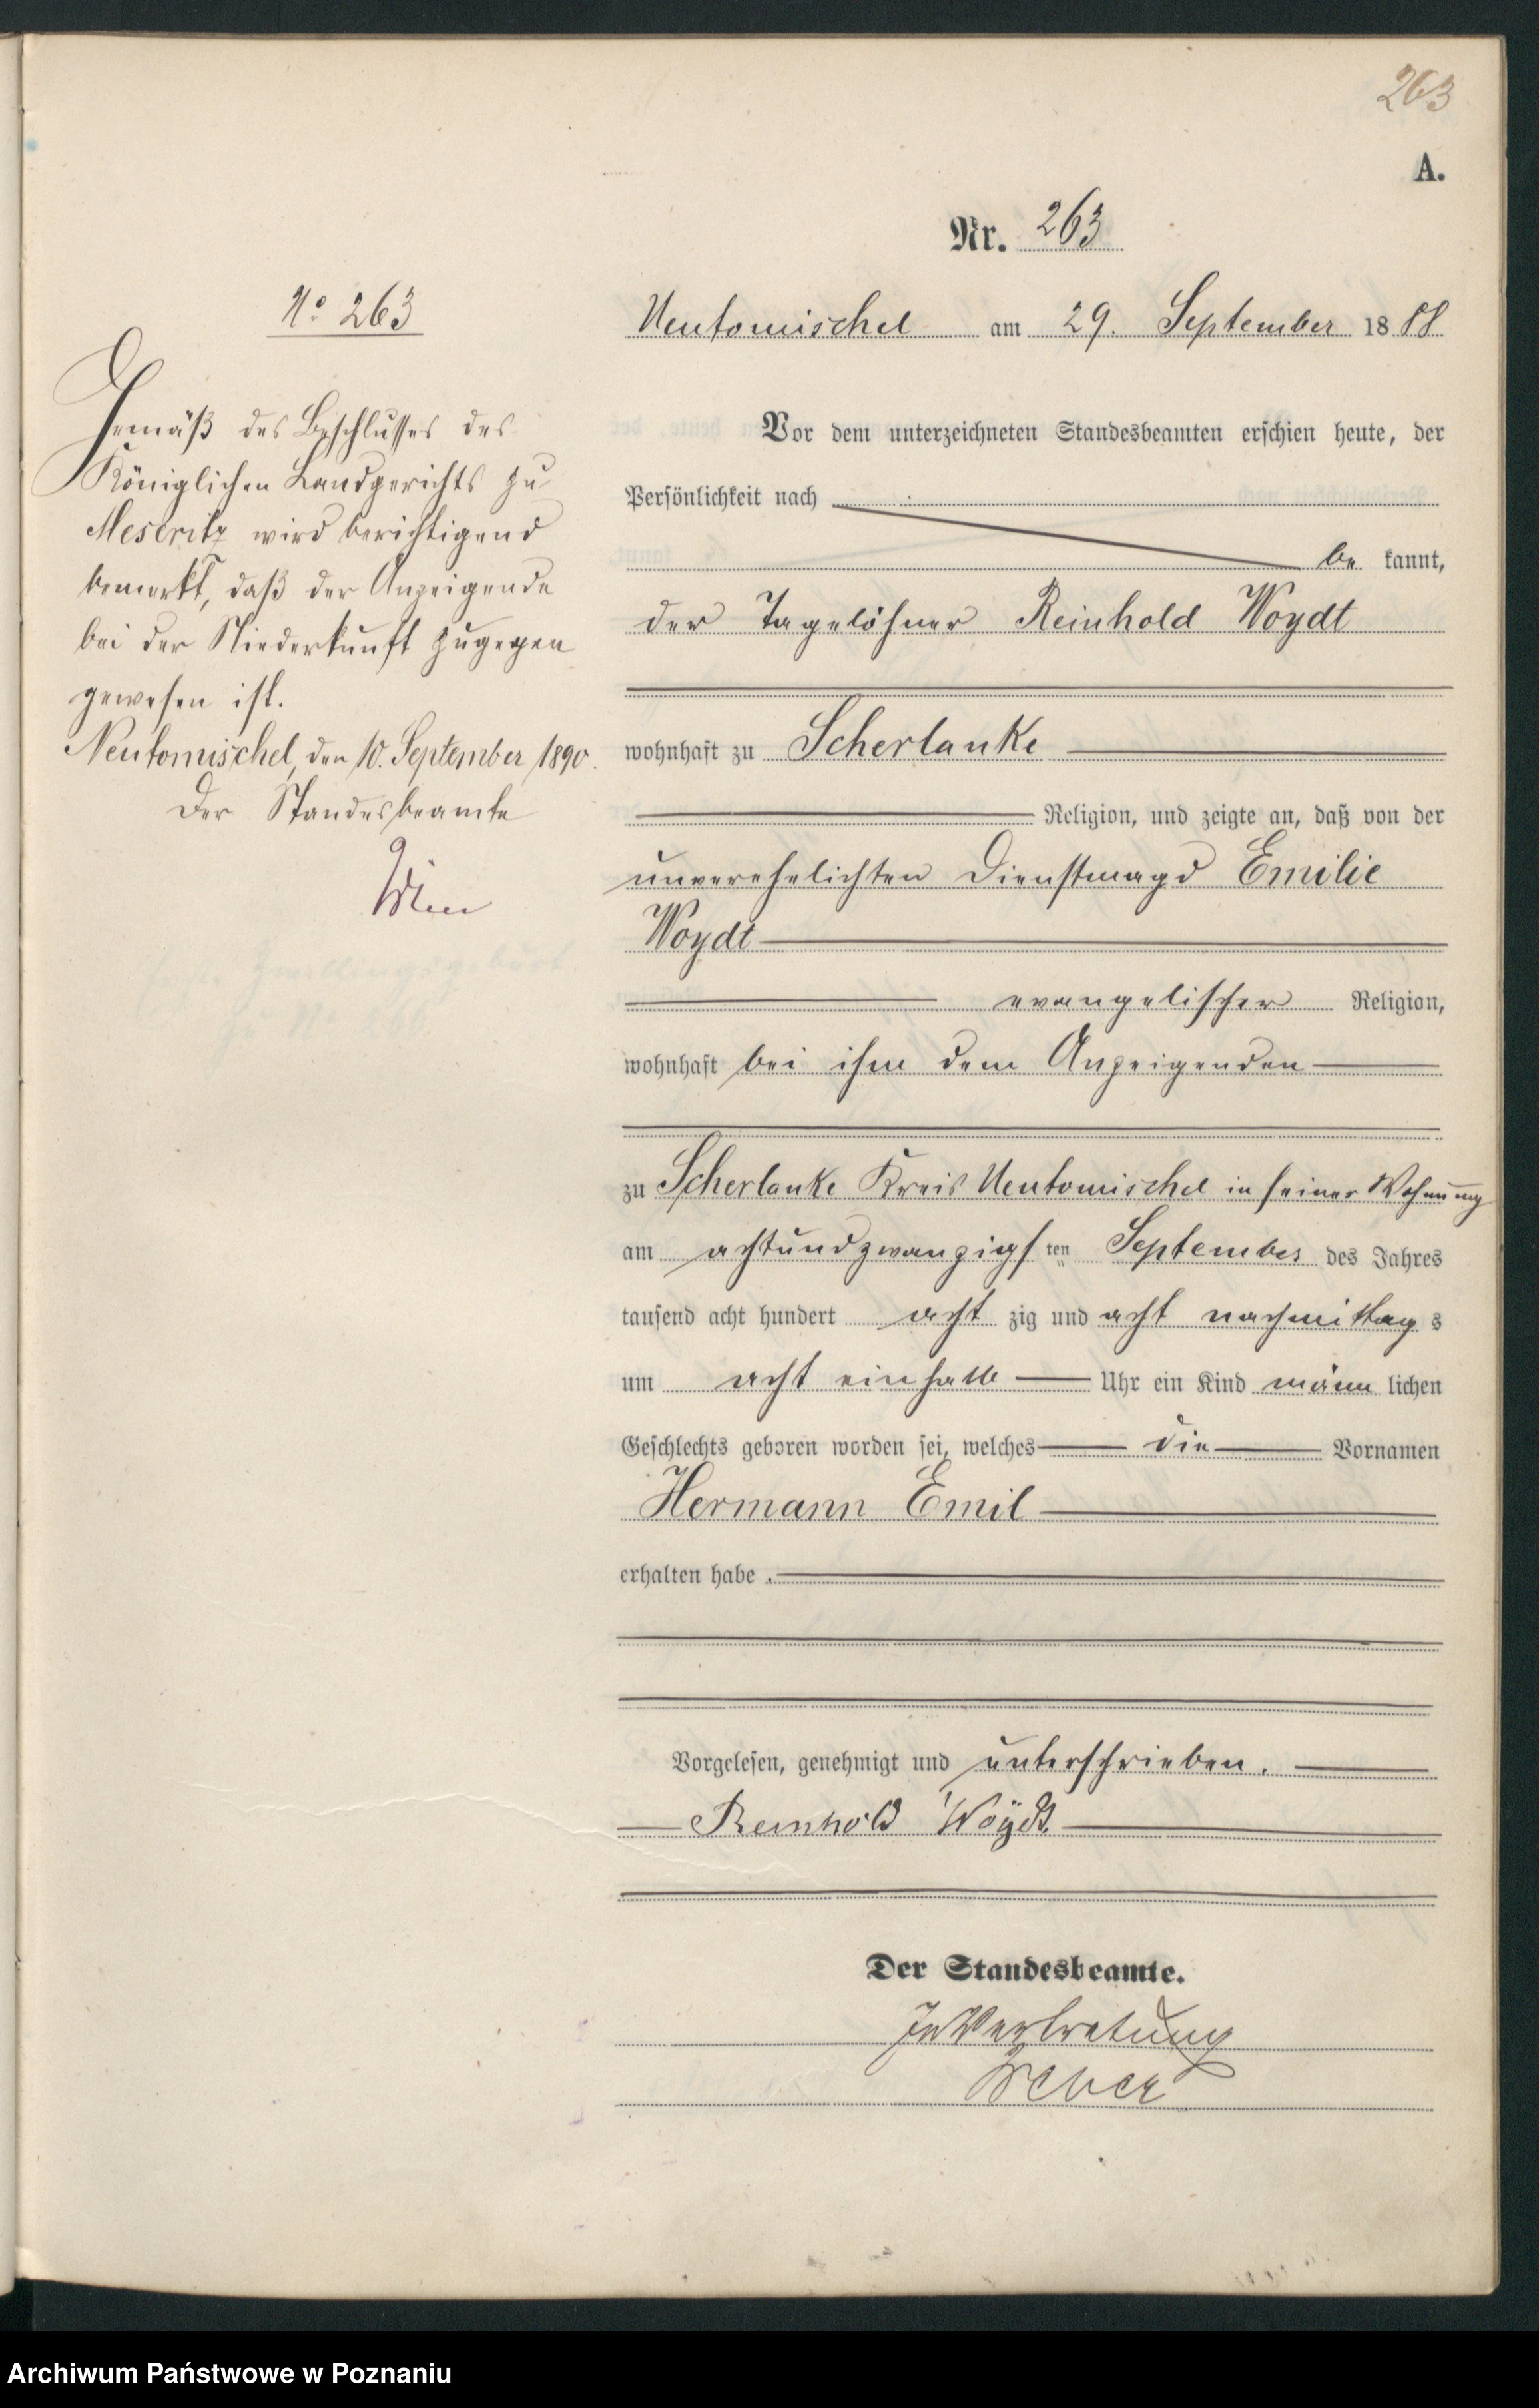 263
A.
Nr. 263
No 263
Gemäß des Beschlusses des
Königlichen Landgerichts zu
Meseritz wird berichtigend
bemerkt, daß der Anzeigende
bei der Niederkunft zugegen
gewesen ist.
Neutomischel, den 10. September 1890.
Der Standesbeamte
Neutomischel am 29. September 1888
Vor dem unterzeichneten Standesbeamten erschien heute, der
Persönlichkeit nach
be kannt,
der Tagelöhner Reinhold Woydt
wohnhaft zu Scherlanke
Religion, und zeigte an, daß von der
unverehelichten Dienstmagd Emilie
Woydt
evangelischer Religion,
wohnhaft bei ihm dem Anzeigenden
zu Scherlanke Kreis Neutomischel in seiner Wohnung
am achtundzwanzigsten September des Jahres
tausend acht hundert acht zig und acht nachmittags
um acht einhalb Uhr ein Kind männlichen
Geschlechts geboren worden sei, welches die Vornamen
Hermann Emil
erhalten habe.
Vorgelesen, genehmigt und unterschrieben.
Reinhold Woÿdt.
Der Standesbeamte.
In Vertretung
Archiwum Państwowe w Poznaniu